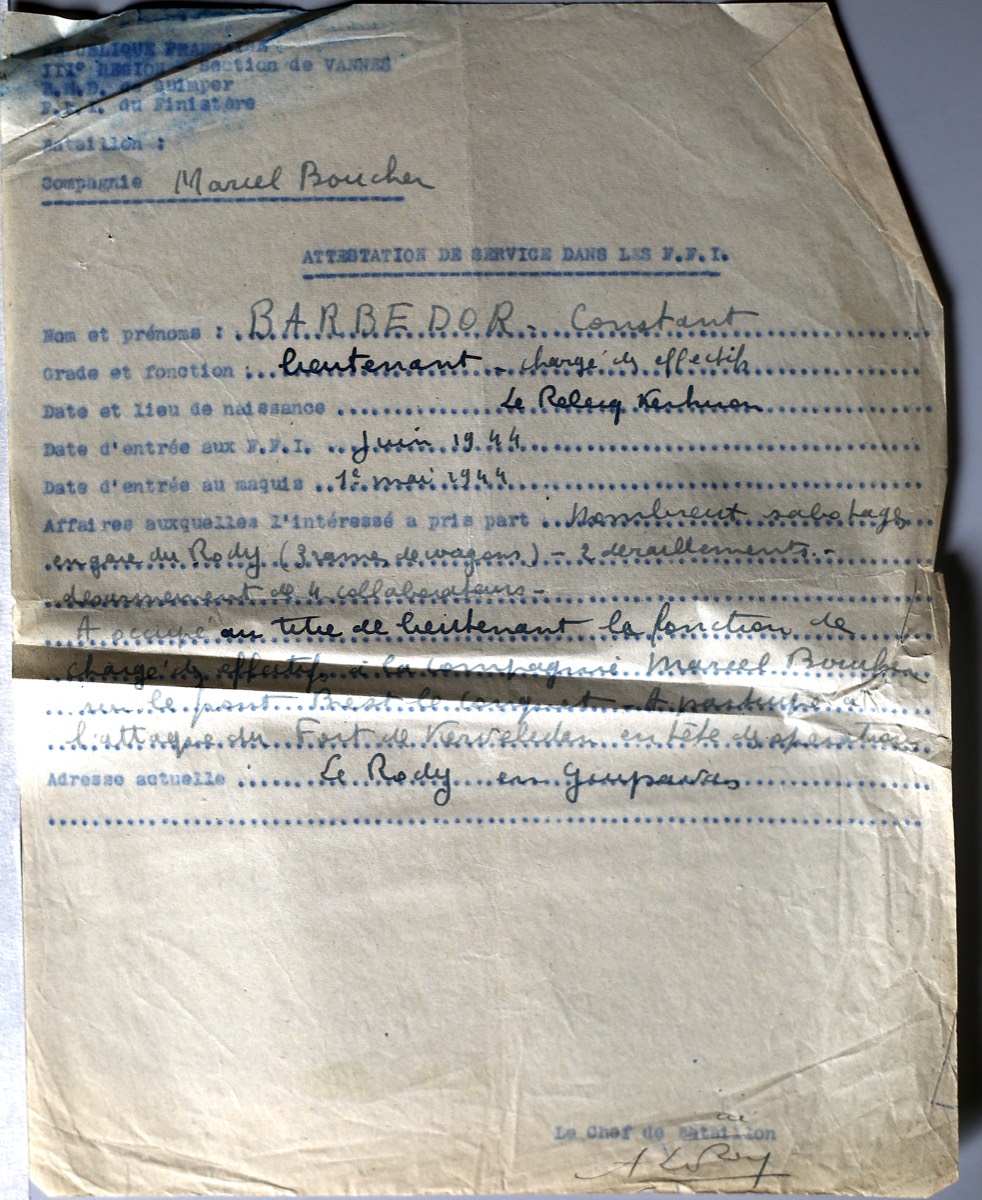 REPUBLIQUE FRANCAISE
III° REGION - Section de VANNES
S.M.D. de Quimper
F.F.I. du Finistère
Bataillon :
Compagnie Marcel Boucher
ATTESTATION DE SERVICE DANS LES F.F.I.
Nom et prénoms : BARBEDOR - Constant
Grade et fonction : lieutenant - chargé des effectifs
Date et lieu de naissance Le Relecq Kerhuon
Date d'entrée aux F.F.I. juin 1944
Date d'entrée au maquis 1e mai 1944
Affaires auxquelles l'intéressé a pris part Nombreux sabotages
en gare du Rody (3 rames de wagons) - 2 déraillements -
désarmement de 4 collaborateurs -
A occupé au titre de lieutenant la fonction de
chargé des effectifs à la compagnie Marcel Boucher
sur le front Brest le Conquet - A participé à
l'attaque du Fort de en tête des opérations
Adresse actuelle Le Rody en Guipavas
Le Chef de Bataillon